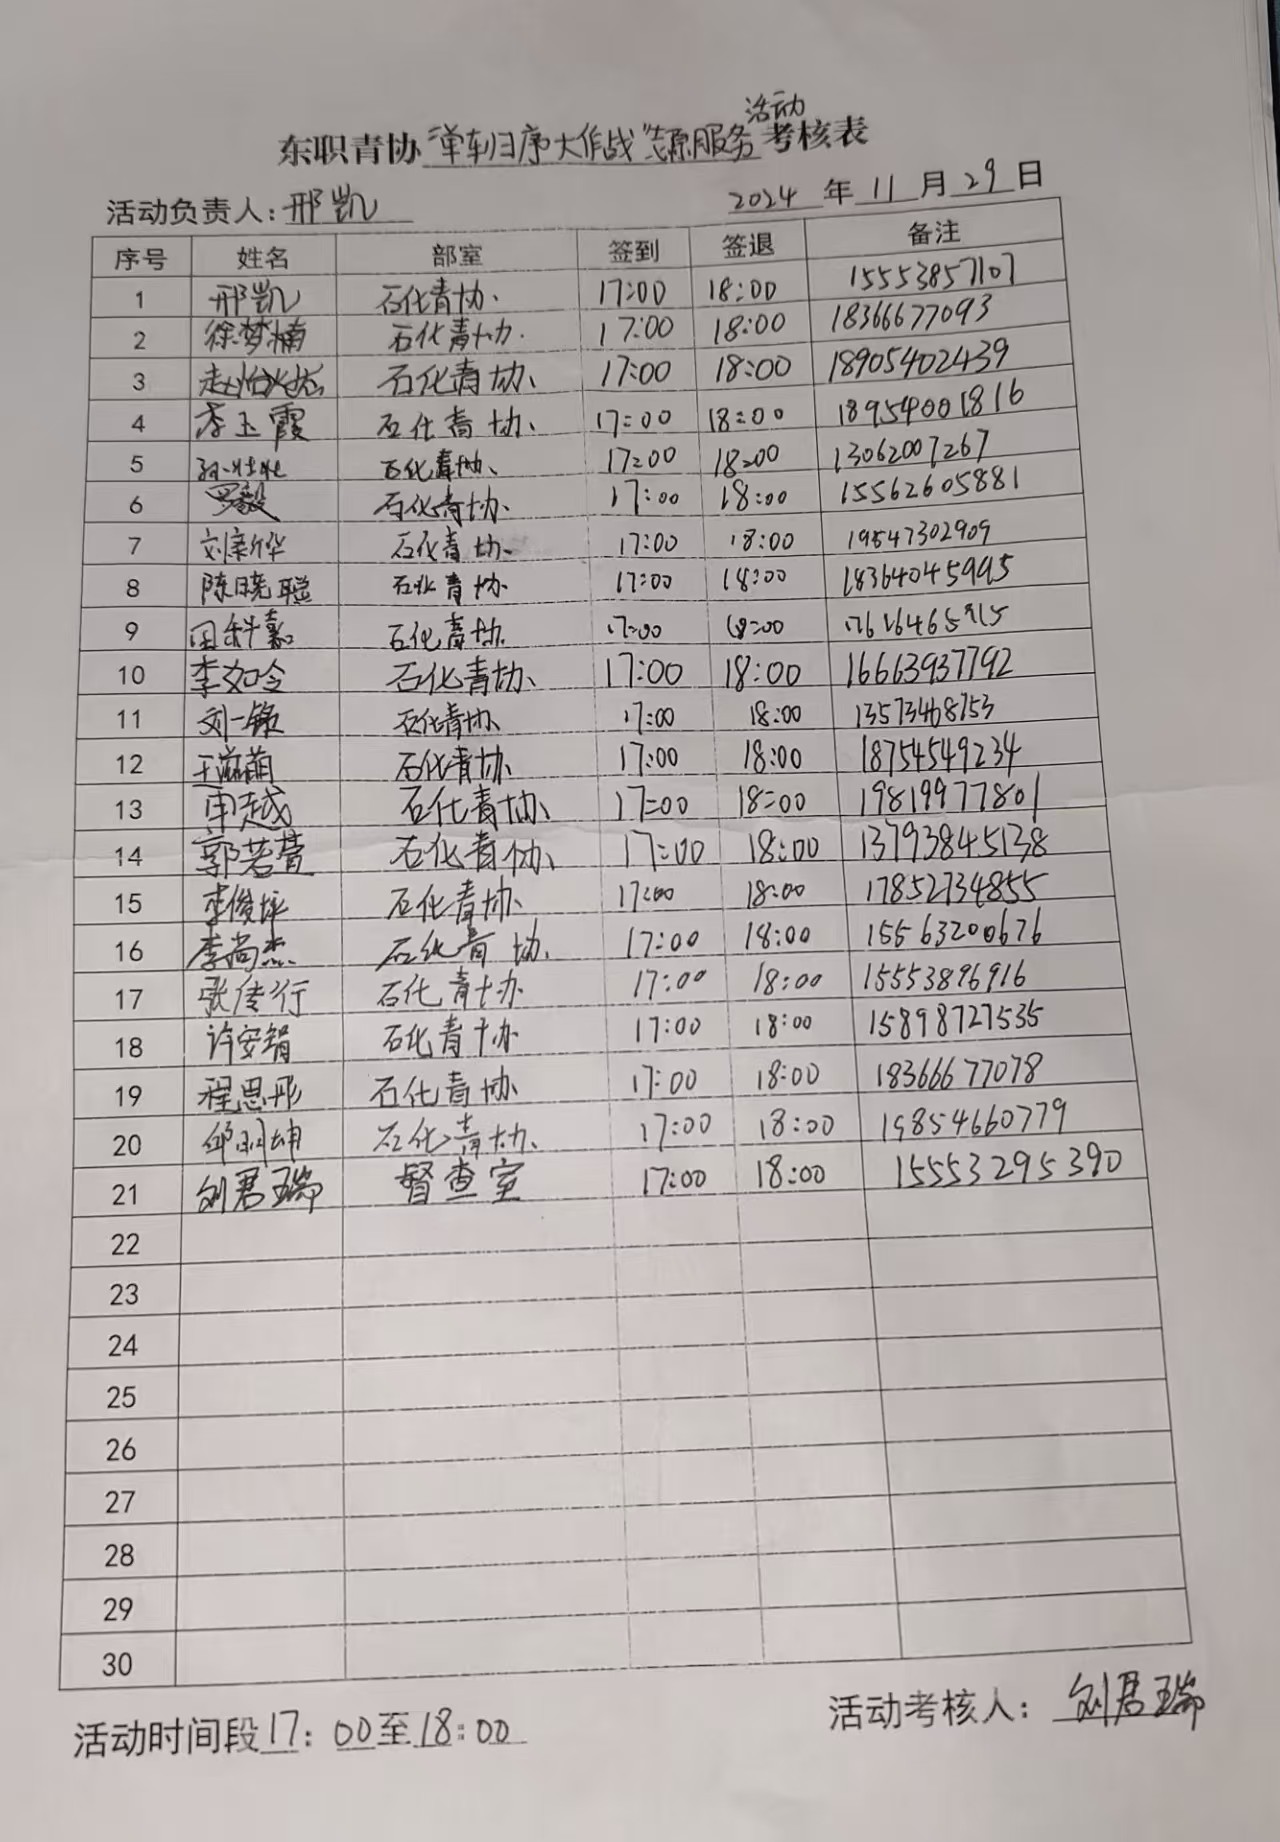 活动
东职青协"单车归序大作战"志愿服务考核表
活动负责人:邢凯 2024 年 11 月 29 日
序号 姓名 部室 签到 签退 备注
1 邢凯 石化青协 17:00 18:00 15553857107
2 徐梦楠 石化青协 17:00 18:00 18366677093
3 石化青协 17:00 18:00 18905402439
4 李玉霞 石化青协 17:00 18:00 18954001816
5 孙壮壮 石化青协 17:00 18:00 13062007267
6 罗毅 石化青协 17:00 18:00 15562605881
7 石化青协 17:00 18:00 19547302909
8 陈晓聪 石化青协 17:00 18:00 18364045995
9 田科嘉 石化青协 17:00 18:00
10 李如令 石化青协 17:00 18:00 16663937792
11 刘一锦 石化青协 17:00 18:00 13573468753
12 石化青协 17:00 18:00 18754549234
13 申越 石化青协 17:00 18:00 19819977801
14 郭若萱 石化青协 17:00 18:00 13793845138
15 李俊坪 石化青协 17:00 18:00 17852734855
16 李尚杰 石化青协 17:00 18:00 15563200676
17 张传行 石化青协 17:00 18:00 15553896916
18 许安娟 石化青协 17:00 18:00 15898727535
19 程思彤 石化青协 17:00 18:00 18366677078
20 邱明坤 石化青协 17:00 18:00 19854660779
21 刘君瑞 督查室 17:00 18:00 15553295390
22
23
24
25
26
27
28
29
30
活动时间段17:00至18:00 活动考核人:刘君瑞